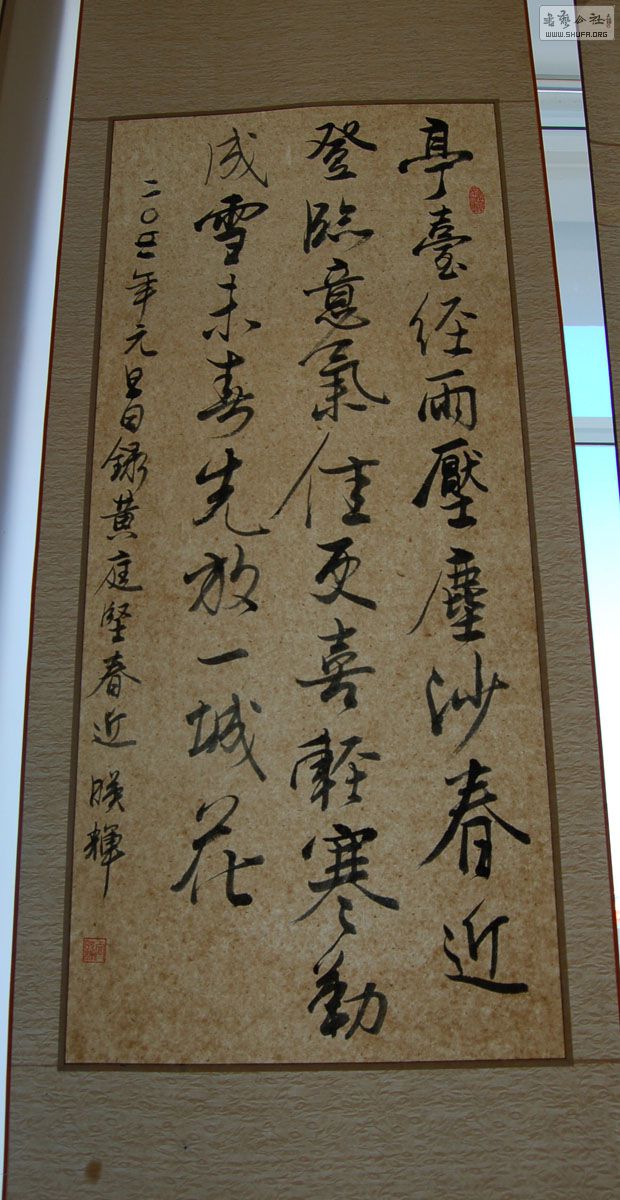 亭臺經雨壓塵沙春近
登臨意氣佳更喜輕寒勒
成雪未春先放一城花
二〇〇二年元旦日錄黄庭堅春近 暎輝
書藝公社
WWW.SHUFA.ORG